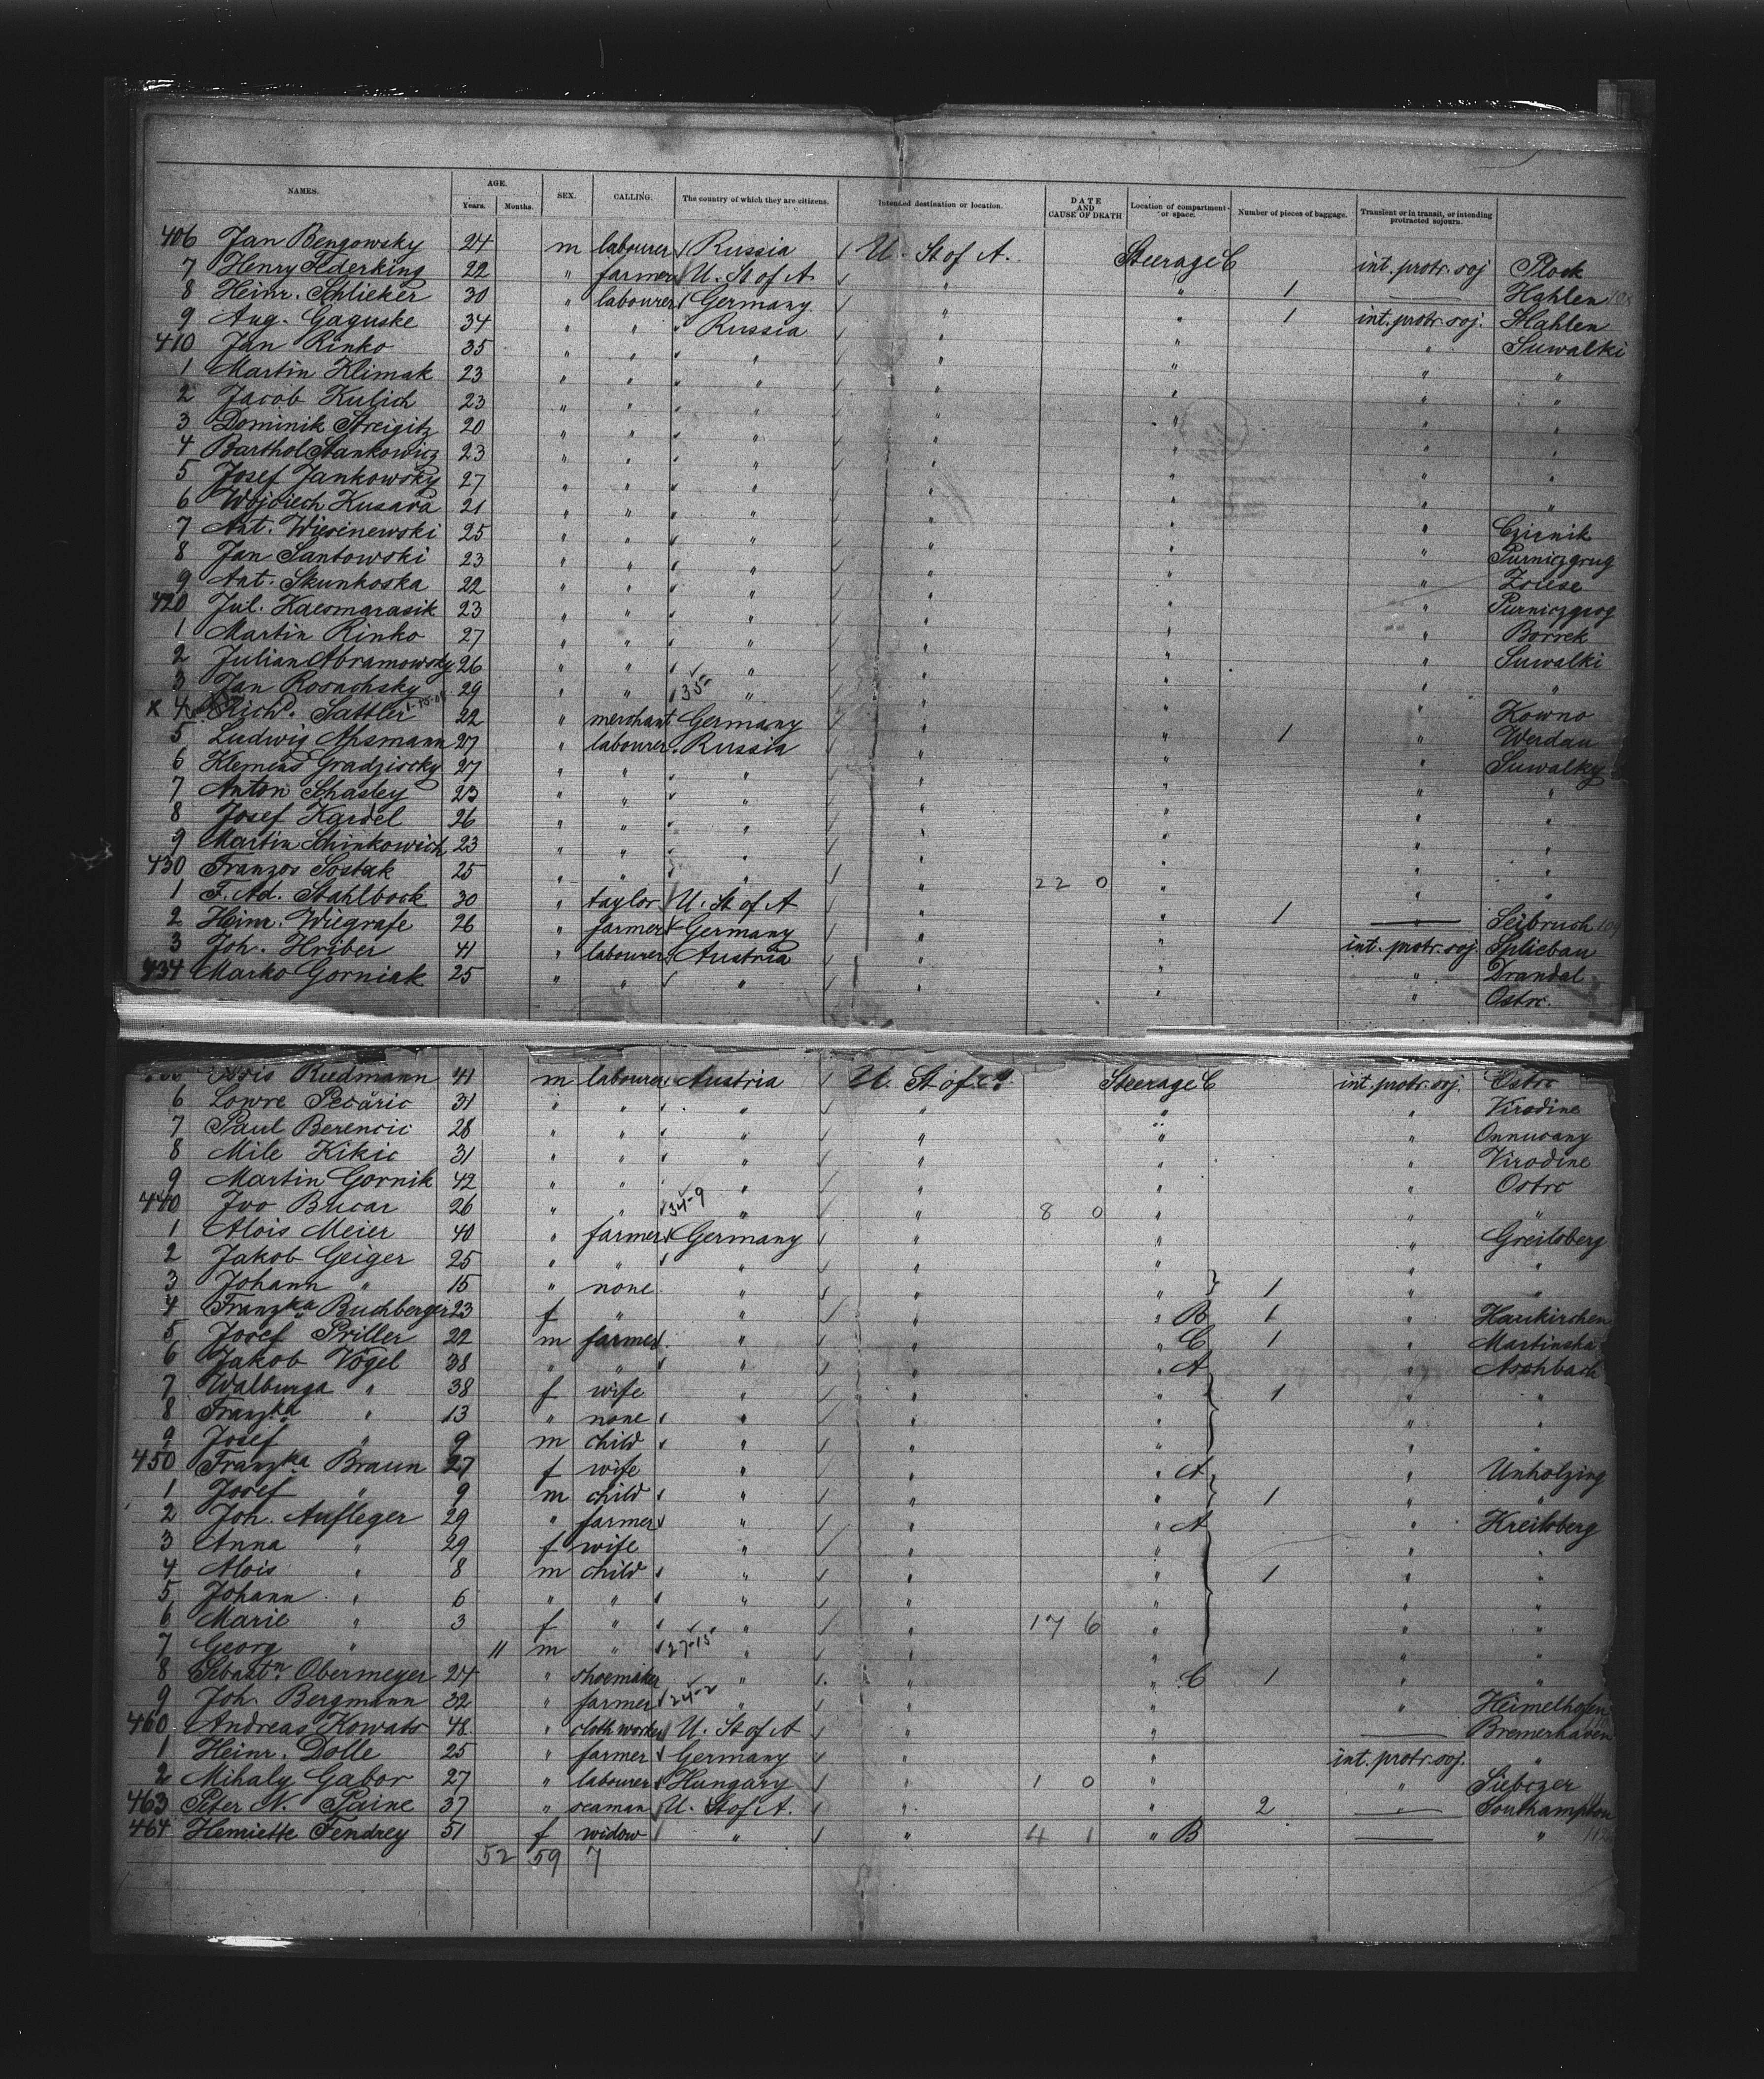 NAMES. AGE. Years. Months. SEX. CALLING. The country of which they are citizens. Intended destination or location. DATE AND CAUSE OF DEATH Location of compartment or space. Number of pieces of baggage. Transient or in transit, or intending protracted sojourn.
406 Jan Bengowsky 24 m labourer Russia U. St of A. Steerage C int. protr. soj Plock
7 Henry Federking 22 " farmer U. St of A " " 1 — Hahlen
8 Heinr. Schlieker 30 " labourer Germany " " 1 int. protr. soj. Hahlen
9 Aug. Gaguske 34 " " Russia " " " Suwalki
410 Jan Rinko 35 " " " " " " "
1 Martin Klimak 23 " " " " " " "
2 Jacob Kulich 23 " " " " " " "
3 Dominik Streigitz 20 " " " " " " "
4 Barthol Stankowicz 23 " " " " " " "
5 Josef Jankowsky 27 " " " " " " "
6 Wojciech Kusara 21 " " " " " " Czirnik
7 Ant. Wiesinewski 25 " " " " " " Purniczgrug
8 Jan Santowski 23 " " " " " " Zoiese
9 Ant. Skunkoska 22 " " " " " " Purniczgrog
420 Jul. Kacomgrasik 23 " " " " " " Borrek
1 Martin Rinko 27 " " " " " " Suwalki
2 Julian Abramowsky 26 " " " " " " "
3 Jan Rosachsky 29 " " 35 " " " " Kowno
x 4 Rich. Sattler 22 " merchant Germany " " 1 " Werdau
5 Ludwig Apsmann 27 " labourer Russia " " " Suwalky
6 Klemens Gradziocky 27 " " " " " " "
7 Anton Schasley 23 " " " " " " "
8 Josef Kardel 26 " " " " " " "
9 Martin Schinkowich 23 " " " " " " "
430 Franzos Sostak 25 " " " " 22 0 " " "
1 F. Ad. Stahlbock 30 " taylor U. St of A " " 1 — Seibruch
2 Heinr. Wiegrafe 26 " farmer Germany " " int. protr. soj. Spliebau
3 Joh. Hriber 41 " labourer Austria " " " Drandal
434 Marko Gorniak 25 " " " " " " Ostrc.
Rudmann 41 m labourer Austria U. St of A. Steerage C int. protr. soj. Ostrc
6 Lowre Pecaric 31 " " " " " " Virodine
7 Paul Berencic 28 " " " " " " Onnucany
8 Mile Kikic 31 " " " " " " Virodine
9 Martin Gornik 42 " " " " " " Ostrc
440 Ivo Bucar 26 " " 34-9 " " 8 0 " " "
1 Alois Meier 40 " farmer Germany " " " Greilsberg
2 Jakob Geiger 25 " " " " " " "
3 Johann " 15 " none " " " 1 " "
4 Franzka Buchberger 23 f " " " " B 1 " Haukirchen
5 Josef Priller 22 m farmer " " " C 1 " Martinska
6 Jakob Vogel 38 " " " " " A " Aschbach
7 Walburga " 38 f wife " " " 1 " "
8 Franzka " 13 " none " " " " "
9 Josef " 9 m child " " " " "
450 Franzka Braun 27 f wife " " " A " Unholzing
1 Josef " 9 m child " " " 1 " "
2 Joh. Aufleger 29 " farmer " " " A " Kreilsberg
3 Anna " 29 f wife " " " " "
4 Alois " 8 m child " " " 1 " "
5 Johann " 6 " " " " " " "
6 Marie " 3 f " " " 17 6 " " "
7 Georg " 11 m " 27-15 " " " " "
8 Sebastn. Obermeyer 24 " shoemaker " " " C 1 " "
9 Joh. Bergmann 32 " farmer 24-2 " " " " Heimelhofen
460 Andreas Kowats 48 " cloth worker U. St of A " " — Bremerhaven
1 Heinr. Dolle 25 " farmer Germany " " int. protr. soj. "
2 Mihaly Gabor 27 " labourer Hungary " 1 0 " " Siebczer
463 Peter N. Paine 37 " seaman U. St of A. " " 2 — Southampton
464 Henriette Fendrey 51 f widow " " 4 1 " B — "
52 59 7